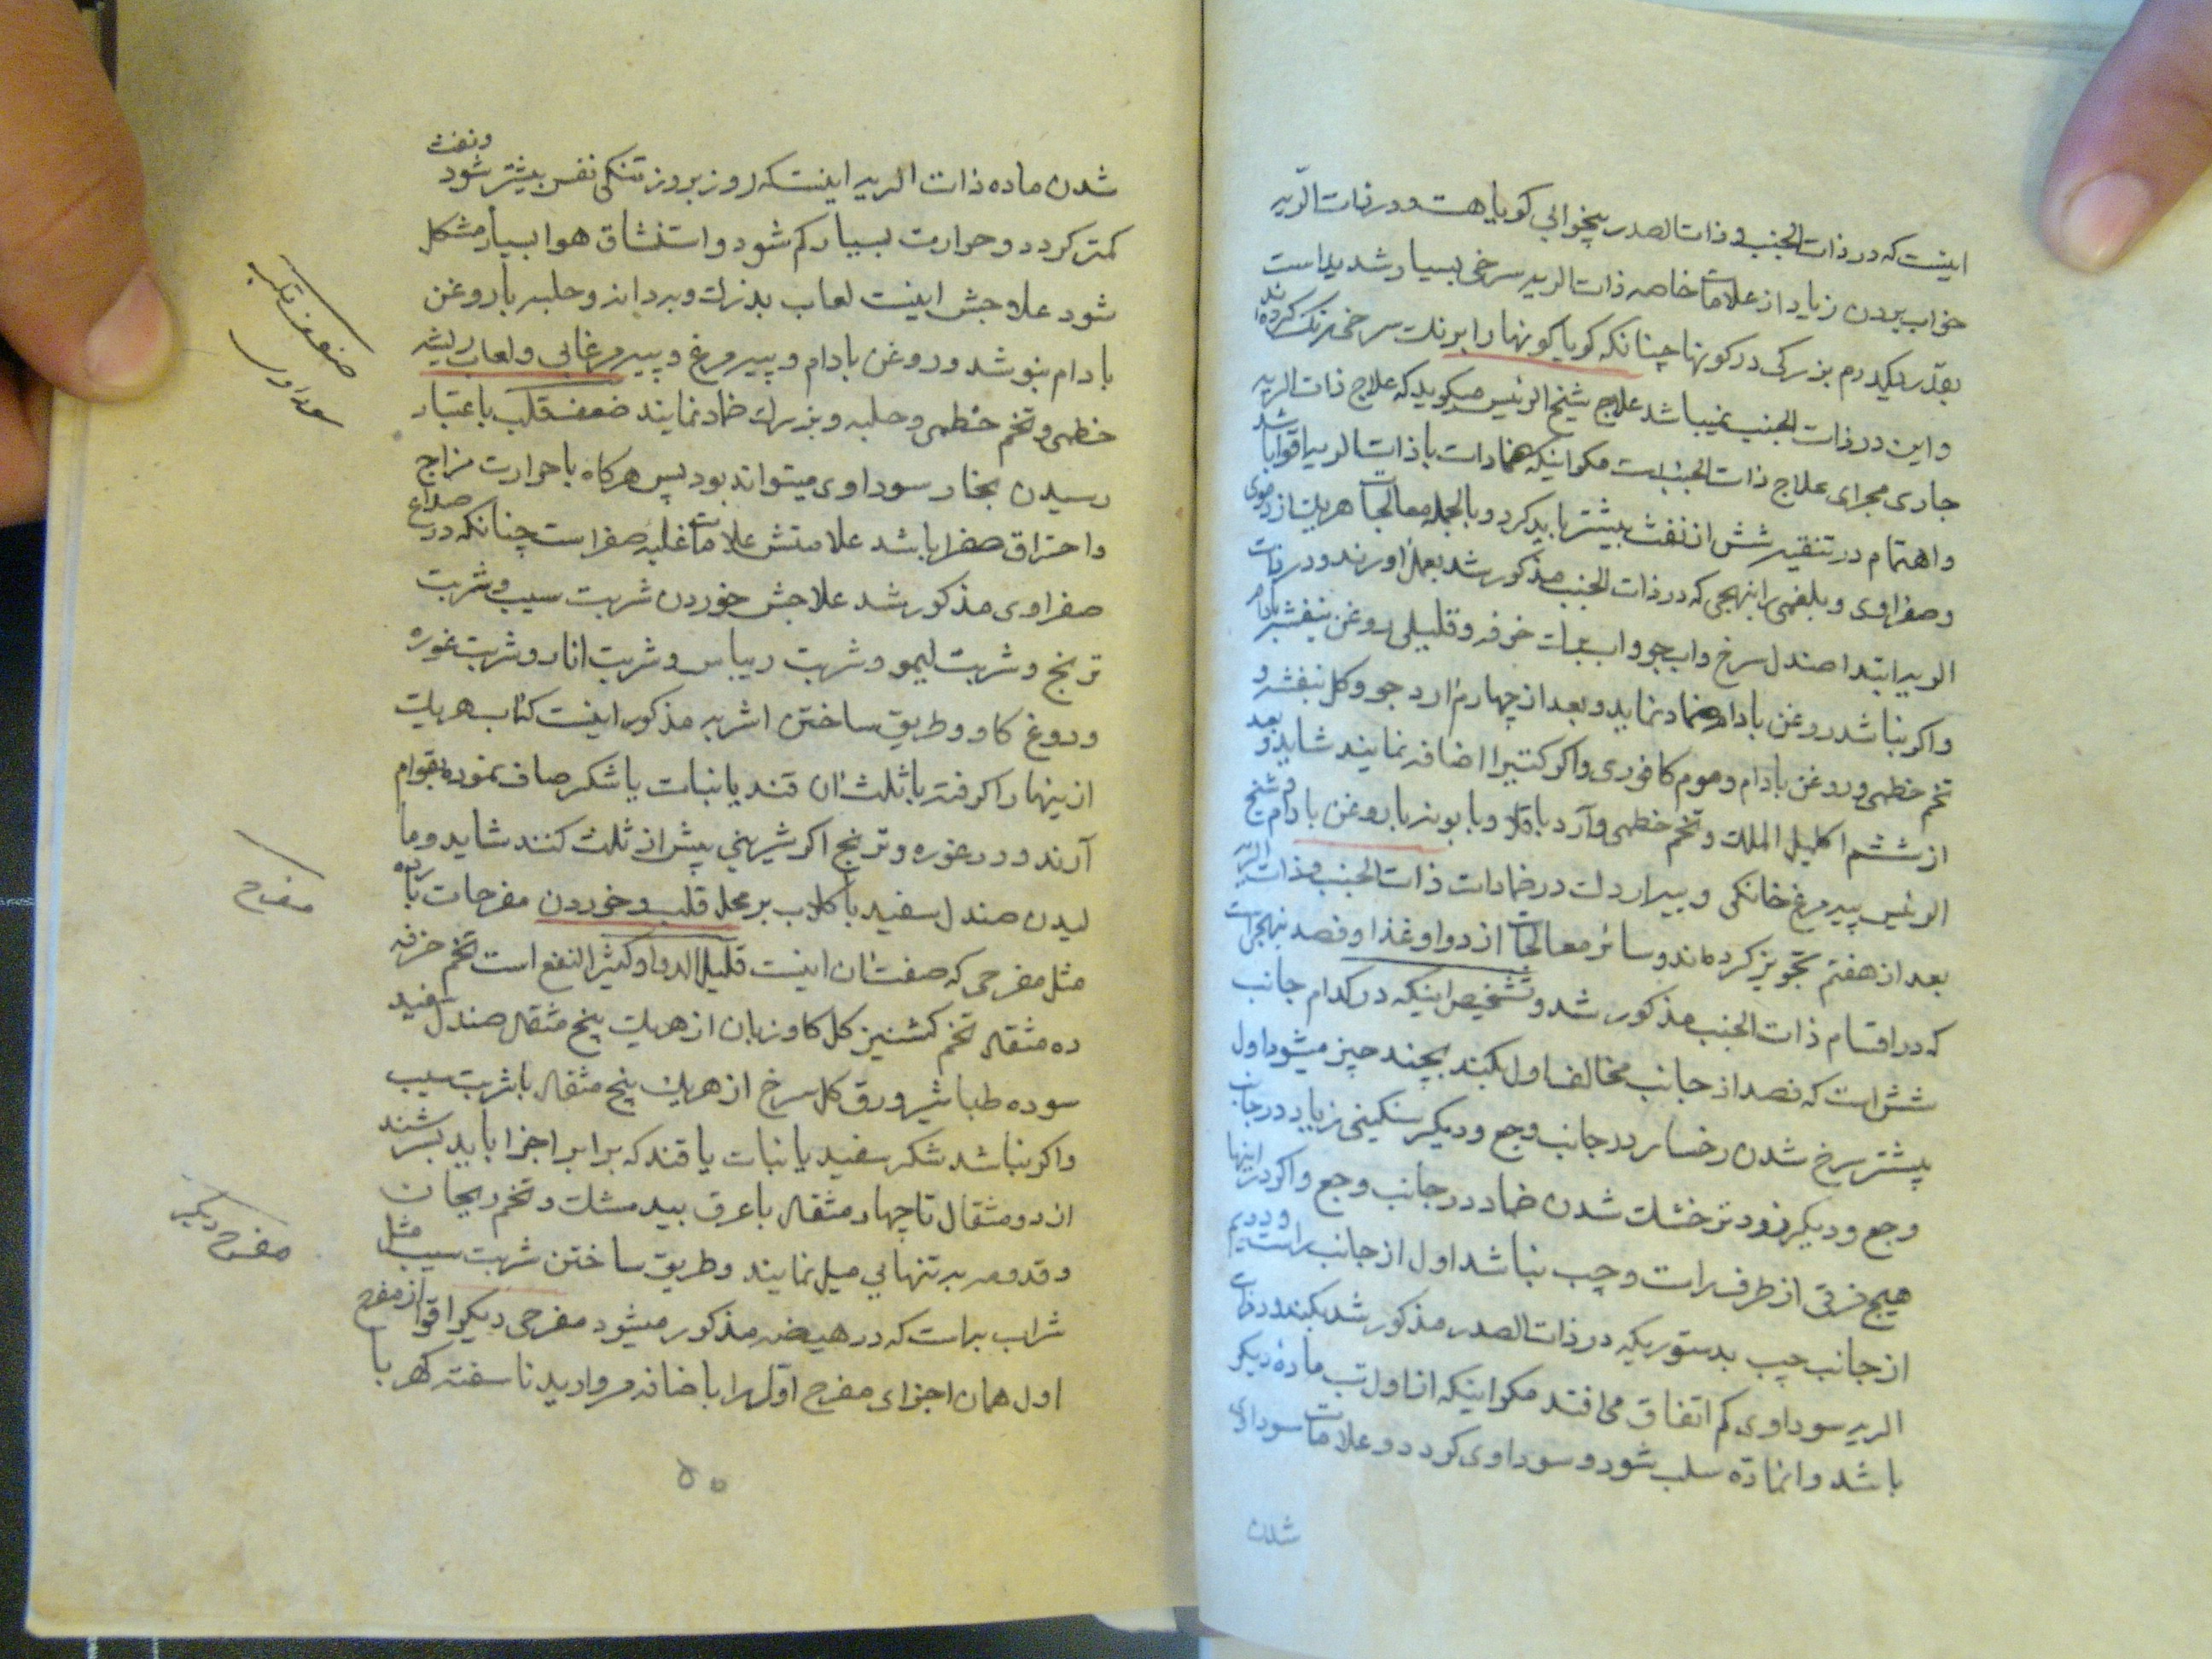 اینست که در ذات الجنب و ذات الصدر بیخوابی کویا هست و در ذات الریه
خواب بردن زیاد از علامات خاصه ذات الریه سرخی بسیار شدید است
بقدر یکدرم بزرکی در کونها چنانکه کویا کونها را برنك سرخی رنك کرده‌اند
و این در ذات الجنب نمیباشد علاج شیخ الرئیس میکوید که علاج ذات الریه
جاری مجرای علاج ذات الجنب است مکر اینکه ضمادات با ذات الریه اقوا باشد
و اهتمام در تنقیه شش از نفث بیشتر باید کرد و بالجمله معالجات هریك از دموی
و صفراوی و بلغمی را بنهجی که در ذات الجنب مذکور شد بعمل اورند و در ذات
الریه ابتدا صندل سرخ و اب جو و اب نبات خرفه و قلیلی روغن بنفشه بادام
و اکر نباشد روغن بادام ضماد نماید و بعد از چهارم ارد جو و کل بنفشه و
تخم خطمی و روغن بادام و موم کافوری و اکر کتیرا اضافه نمایند شاید و بعد
از ششم اکلیل الملك و تخم خطمی و آرد باقلا و بابونه با روغن بادام و شیخ
الرئیس پیه مرغ خانکی و پیه اردك در ضمادات ذات الجنب و ذات الریه
بعد از هفتم تجویز کرده‌اند و سائر معالجات از دوا و غذا و فصد بنهجی است
که در اقسام ذات الجنب مذکور شد و تشخیص اینکه در کدام جانب
شش است که فصد از جانب مخالف اول بکنند بچند چیز میشود اول
پیشتر سرخ شدن رخسار در جانب وجع و دیکر سنکینی زیاد در جانب
وجع و دیکر زودتر خشك شدن ضماد در جانب وجع و اکر در اینها
هیچ فرقی از طرف راست و چپ نباشد اول از جانب راست و دویم
از جانب چپ بدستوریکه در ذات الصدر مذکور شد بکنند و در ذات
الریه سوداوی کم اتفاق می افتد مکر اینکه از اول تب ماده دیکر
باشد و انماده سلب شود و سوداوی کردد و علامات سوداوی
شدن
شدن ماده ذات الریه اینست که روز بروز تنکی نفس بیشتر شود و نفث
کمتر کردد و حرارت بسیار کم شود و استنشاق هوا بسیار مشکل
شود علاجش اینست لعاب بذرك و بهدانه و حلبه با روغن
بادام بنوشد و روغن بادام و پیه مرغ و پیه مرغابی و لعاب ریشه
خطمی و تخم خطمی و حلبه و بزرك ضماد نمایند ضعف قلب باعتبار
رسیدن بخار سوداوی میتواند بود پس هرکاه با حرارت مزاج
و احتراق صفرا باشد علامتش علامات غلبه صفراست چنانکه در صداع
صفراوی مذکور شد علاجش خوردن شربت سیب و شربت
ترنج و شربت لیمو و شربت ریباس و شربت انار و شربت غوره
و دوغ کاو و طریق ساختن اشربه مذکور اینست که اب هریك
ازینها را کرفته با ثلث ان قند یا نبات یا شکر صاف نموده بقوام
آرند و در غوره و ترنج اکر شیرینی بیش از ثلث کنند شاید و ما
لیدن صندل سفید با کلاب بر محل قلب و خوردن مفرحات بارده
مثل مفرحی که صفت ان اینست قلیل الدوا و کثیر النفع است تخم خرفه
ده مثقال تخم کشنیز کل کاوزبان از هریك پنج مثقال صندل سفید
سوده طباشیر ورق کل سرخ از هریك پنج مثقال با شربت سیب
و اکر نباشد شکر سفید یا نبات یا قند که برابر اجزا باید بسرشند
از دو مثقال تا چهار مثقال با عرق بیدمشك و تخم ریحان
و قدومه به تنهایی میل نمایند و طریق ساختن شربت سیب مثل
شراب به است که در هیضه مذکور میشود مفرحی دیکر اقوا از مفرح
اول همان اجزای مفرح اول را باضافه مروارید ناسفته کهربا
ضعف قلب
سوداوی
مفرح
مفرح دیکر
۵۰